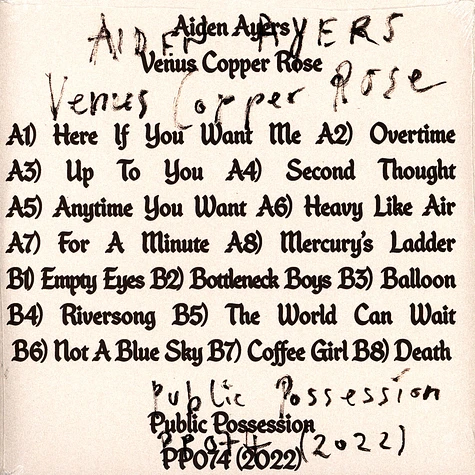 Aiden Ayers
AIDEN AYERS
Venus Copper Rose
Venus Copper Rose
A1) Here If You Want Me A2) Overtime
A3) Up To You A4) Second Thought
A5) Anytime You Want A6) Heavy Like Air
A7) For A Minute A8) Mercury's Ladder
B1) Empty Eyes B2) Bottleneck Boys B3) Balloon
B4) Riversong B5) The World Can Wait
B6) Not A Blue Sky B7) Coffee Girl B8) Death
Public Possession
Public Possession
PP074 (2022)
PP074 (2022)